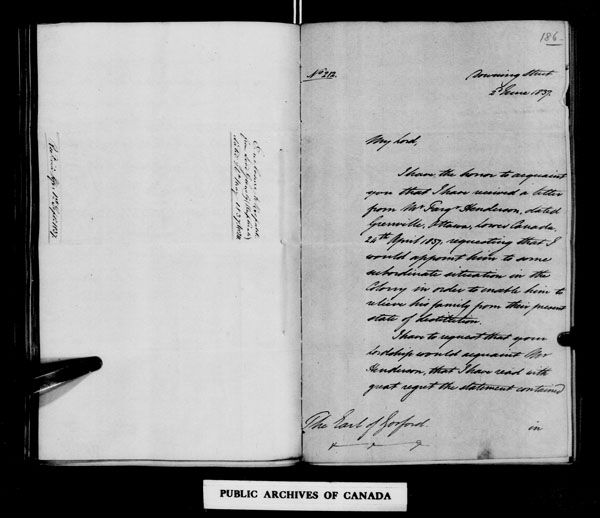 186
No 212
Downing Street
2d June 1837.
My Lord,
I have the honor to acquaint
you that I have received a letter
from Mr Fergs Henderson, dated
Grenville, Ottawa, Lower Canada,
24th April 1837, requesting that I
would appoint him to some
subordinate situation in the
Colony in order to enable him to
relieve his family from their present
state of destitution.
I have to request that your
Lordship would acquaint Mr
Henderson, that I have read with
great regret the statement contained
The Earl of Gosford
in
PUBLIC ARCHIVES OF CANADA